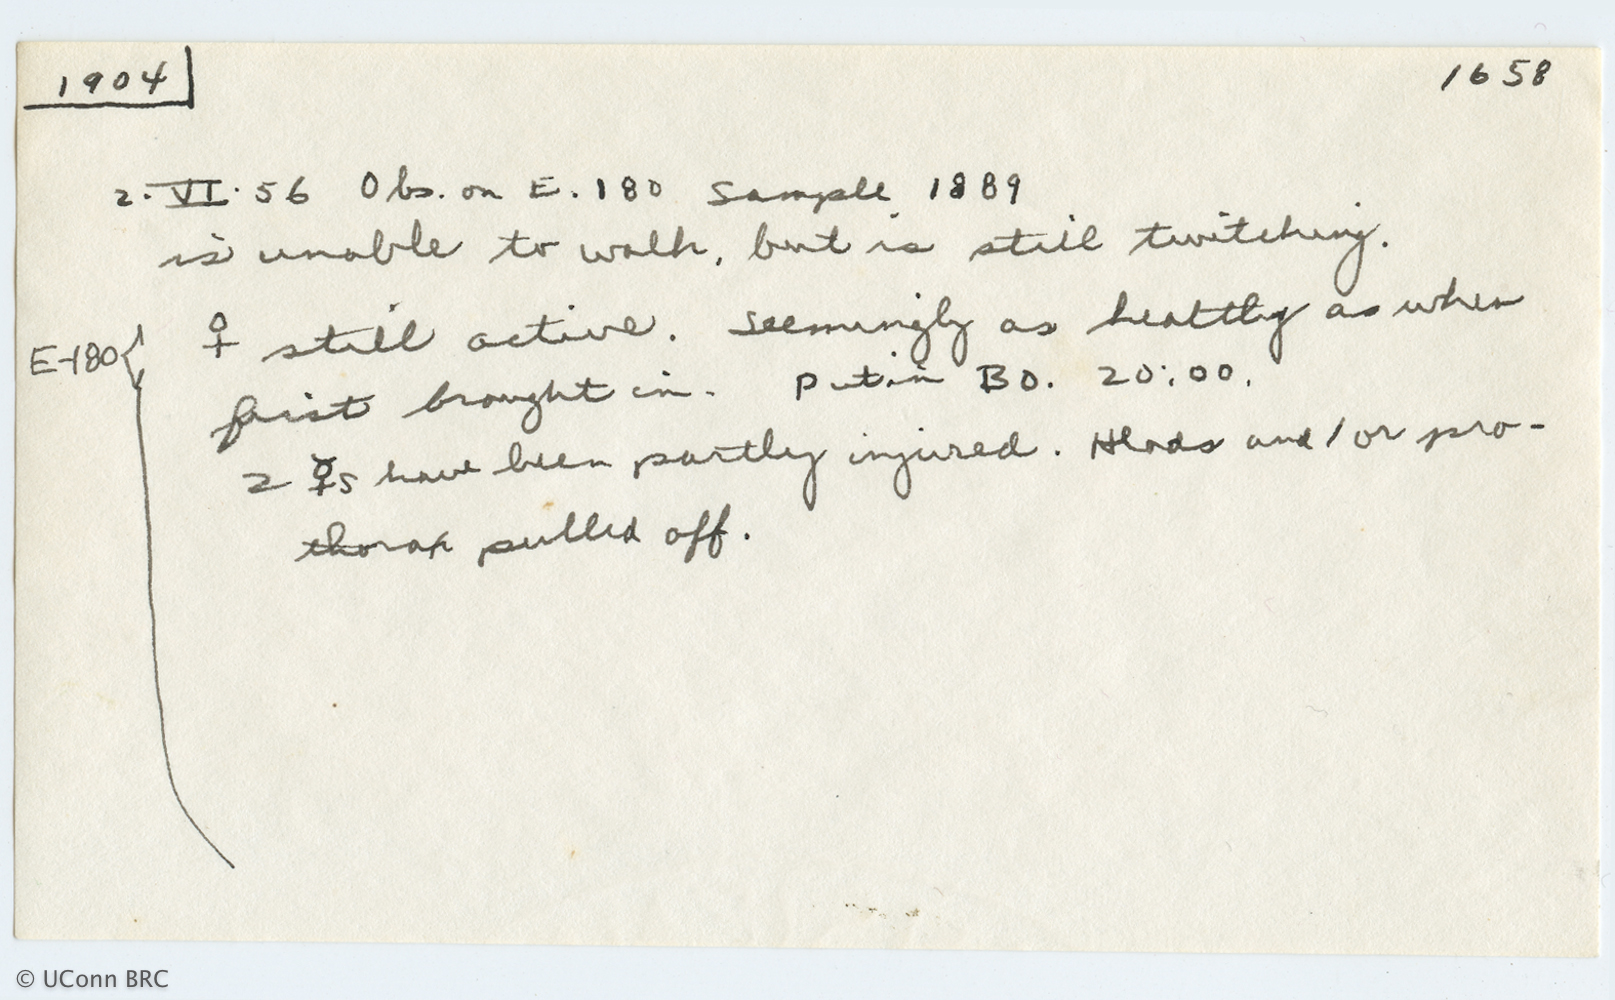 1904
1658
2.VI.56 Obs. on E.180 Sample 1889
is unable to walk, but is still twitching.
E-180 { ♀ still active. Seemingly as healthy as when
first brought in. Put in BO. 20:00.
2 ☿s have been partly injured. Heads and/or pro-
thorax pulled off.
© UConn BRC